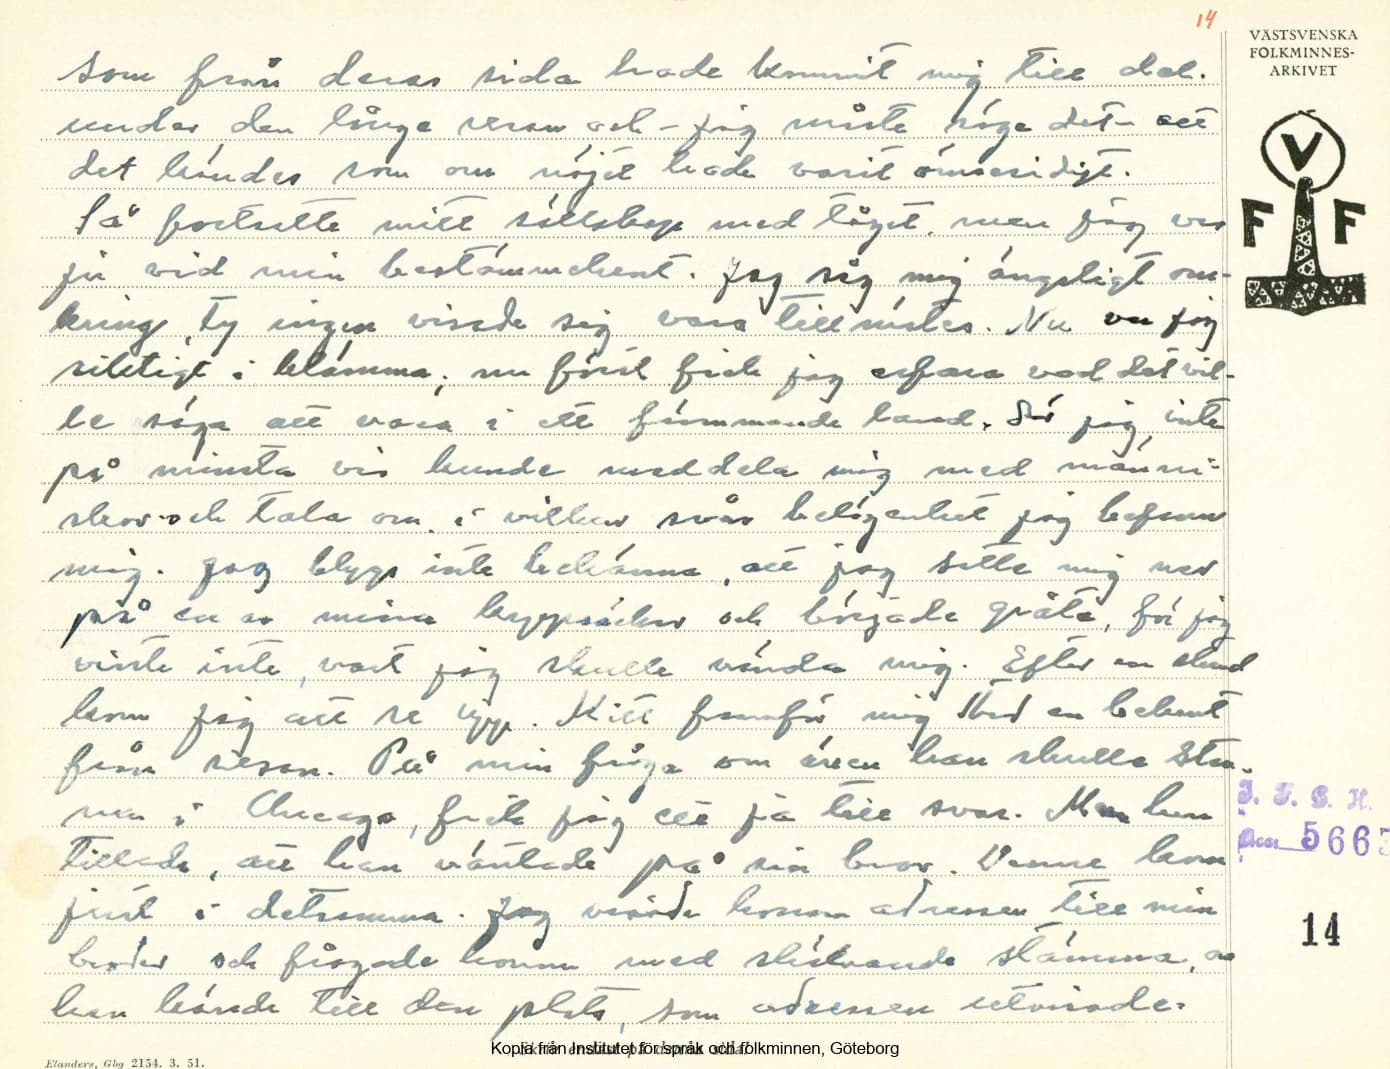 14
VÄSTSVENSKA
FOLKMINNES-
ARKIVET
V
F F
som från deras sida hade kommit mig till del.
under den långa resan och – jag måste säga det – att
det kändes som om nöjet hade varit ömsesidigt.
Så fortsatte mitt sällskap med tåget, men jag var
ju vid min bestämmelseort. Jag såg mig ängsligt om-
kring, ty ingen visade sig vara till mötes. Nu var jag
riktigt i klämma; nu först fick jag erfara vad det vil-
le säga att vara i ett främmande land. Där jag inte
på minsta vis kunde meddela mig med männi-
skor och tala om i vilken svår belägenhet jag befann
mig. Jag blygs inte bekänna, att jag satte mig ner
på en av mina kappsäckar och började gråta, för jag
visste inte, vart jag skulle vända mig. Efter en stund
kom jag att se upp. Mitt framför mig stod en bekant
från resan. På min fråga om även han skulle stan-
na i Chicago, fick jag ett ja till svar. Men han
tillade, att han väntade på sin bror. Denne kom
just i detsamma. Jag visade honom adressen till min
broder och frågade honom med skälvande stämma, om
han kände till den plats, som adressen utvisade.
I. F. G. H.
Acc. 5665
14
Elanders, Gbg 2154. 3. 51.
Kopia från Institutet för språk och folkminnen, Göteborg